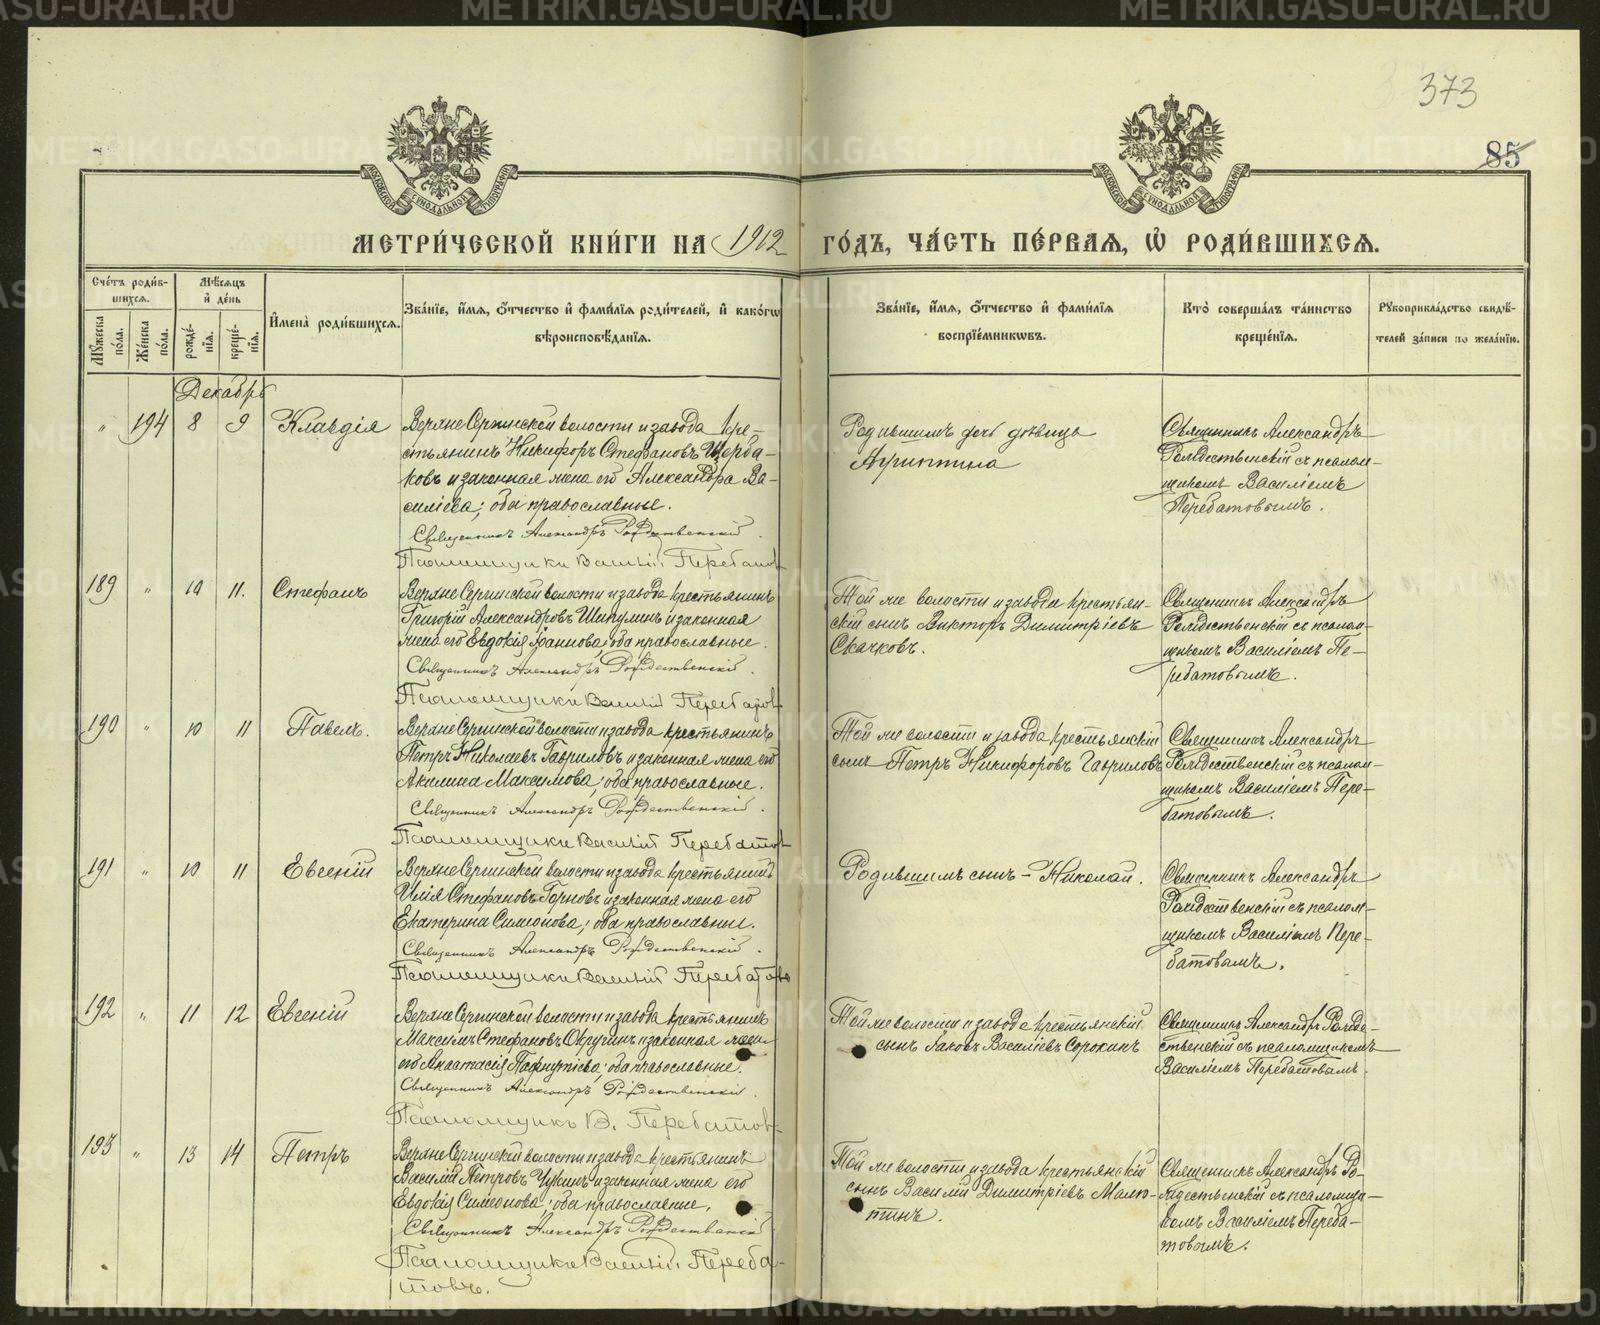 METRIKI.GASO-URAL.RU
373
85
МОСКОВСКОЙ СѴНОДАЛЬНОЙ ТИПОГРАФІИ
МЕТРИ́ЧЕСКОЙ КНИ́ГИ НА 1912 ГО́ДЪ, ЧА́СТЬ ПЕ́РВАЯ, Ѡ РОДИ́ВШИХСЯ.
Сче́тъ роди́вшихся.
Мꙋжеска по́ла.
Же́нска по́ла.
Мѣ́сяцъ и де́нь
рожде́нїя.
креще́нїя.
Имена̀ роди́вшихся.
Зва́нїе, и́мя, ѻ́тчество и фами́лїя роди́телей, и како́гѡ вѣроисповѣ́данїя.
Зва́нїе, и́мя, ѻ́тчество и фами́лїя воспрїе́мникѡвъ.
Кто̀ соверша́лъ та́инство креще́нїя.
Рꙋкоприкла́дство свидѣ́телей за́писи по жела́нїю.
Декабрь
" 194 8 9 Клавдія
Верхне Сергинской волости и завода кре-
стьянинъ Никифоръ Стефановъ Щерба-
ковъ и законная жена его Александра Ва-
силіева; оба православные.
Священникъ Александръ Рождественскій.
Псаломщикъ Василій Перебатовъ
Родившимъ дочь дѣвица
Агриппина
Священникъ Александръ
Рождественскій съ псалом-
щикомъ Василіемъ
Перебатовымъ.
189 " 10 11. Стефанъ
Верхне Сергинской волости и завода крестьянинъ
Григорій Александровъ Шипулинъ и законная
жена его Евдокія Іоаннова; оба православные.
Священникъ Александръ Рождественскій.
Псаломщикъ Василій Перебатовъ
Той же волости и завода крестьян-
скій сынъ Викторъ Димитріевъ
Скачковъ.
Священникъ Александръ
Рождественскій съ псалом-
щикомъ Василіемъ Пе-
ребатовымъ.
190 " 10 11 Павелъ.
Верхне Сергинской волости и завода крестьянинъ
Петръ Николаевъ Гавриловъ и законная жена его
Акилина Максимова; оба православные.
Священникъ Александръ Рождественскій.
Псаломщикъ Василій Перебатовъ
Той же волости и завода крестьянскій
сынъ Петръ Никифоровъ Гавриловъ
Священникъ Александръ
Рождественскій съ псалом-
щикомъ Василіемъ Пере-
батовымъ.
191 " 10 11 Евгеній
Верхне Сергинской волости и завода крестьянинъ
Илія Стефановъ Горновъ и законная жена его
Екатерина Симеонова; оба православные.
Священникъ Александръ Рождественскій.
Псаломщикъ Василій Перебатовъ
Родившимъ сынъ - Николай.
Священникъ Александръ
Рождественскій съ псалом-
щикомъ Василіемъ Пере-
батовымъ.
192 " 11 12 Евгеній
Верхне Сергинской волости и завода крестьянинъ
Максимъ Стефановъ Округинъ и законная жена
его Анастасія Пафнутіева; оба православные.
Священникъ Александръ Рождественскій.
Псаломщикъ В. Перебатовъ
Той же волости и завода крестьянскій
сынъ Іаковъ Василіевъ Сорокинъ
Священникъ Александръ Рожде-
ственскій съ псаломщикомъ
Василіемъ Перебатовымъ.
193 " 13 14 Петръ
Верхне Сергинской волости и завода крестьянинъ
Василій Петровъ Чукинъ и законная жена его
Евдокія Симеонова; оба православные.
Священникъ Александръ Рождественскій
Псаломщикъ Василій Переба-
товъ.
Той же волости и завода крестьянскій
сынъ Василій Димитріевъ Малю-
тинъ.
Священникъ Александръ Ро-
ждественскій съ псаломщи-
комъ Василіемъ Переба-
товымъ.